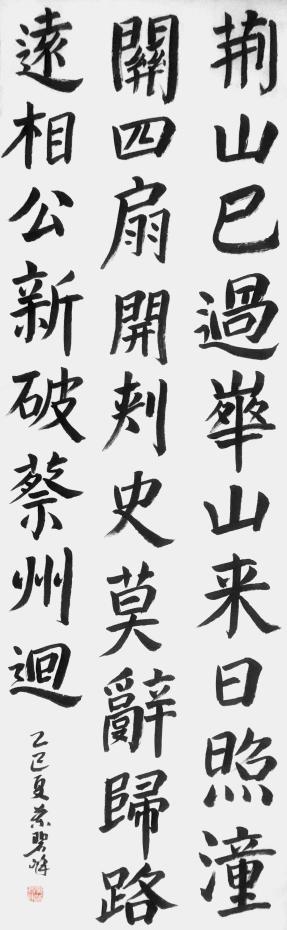 荆山已過華山来日照潼
關四扇開刺史莫辭歸路
遠相公新破蔡州迴
乙巳夏